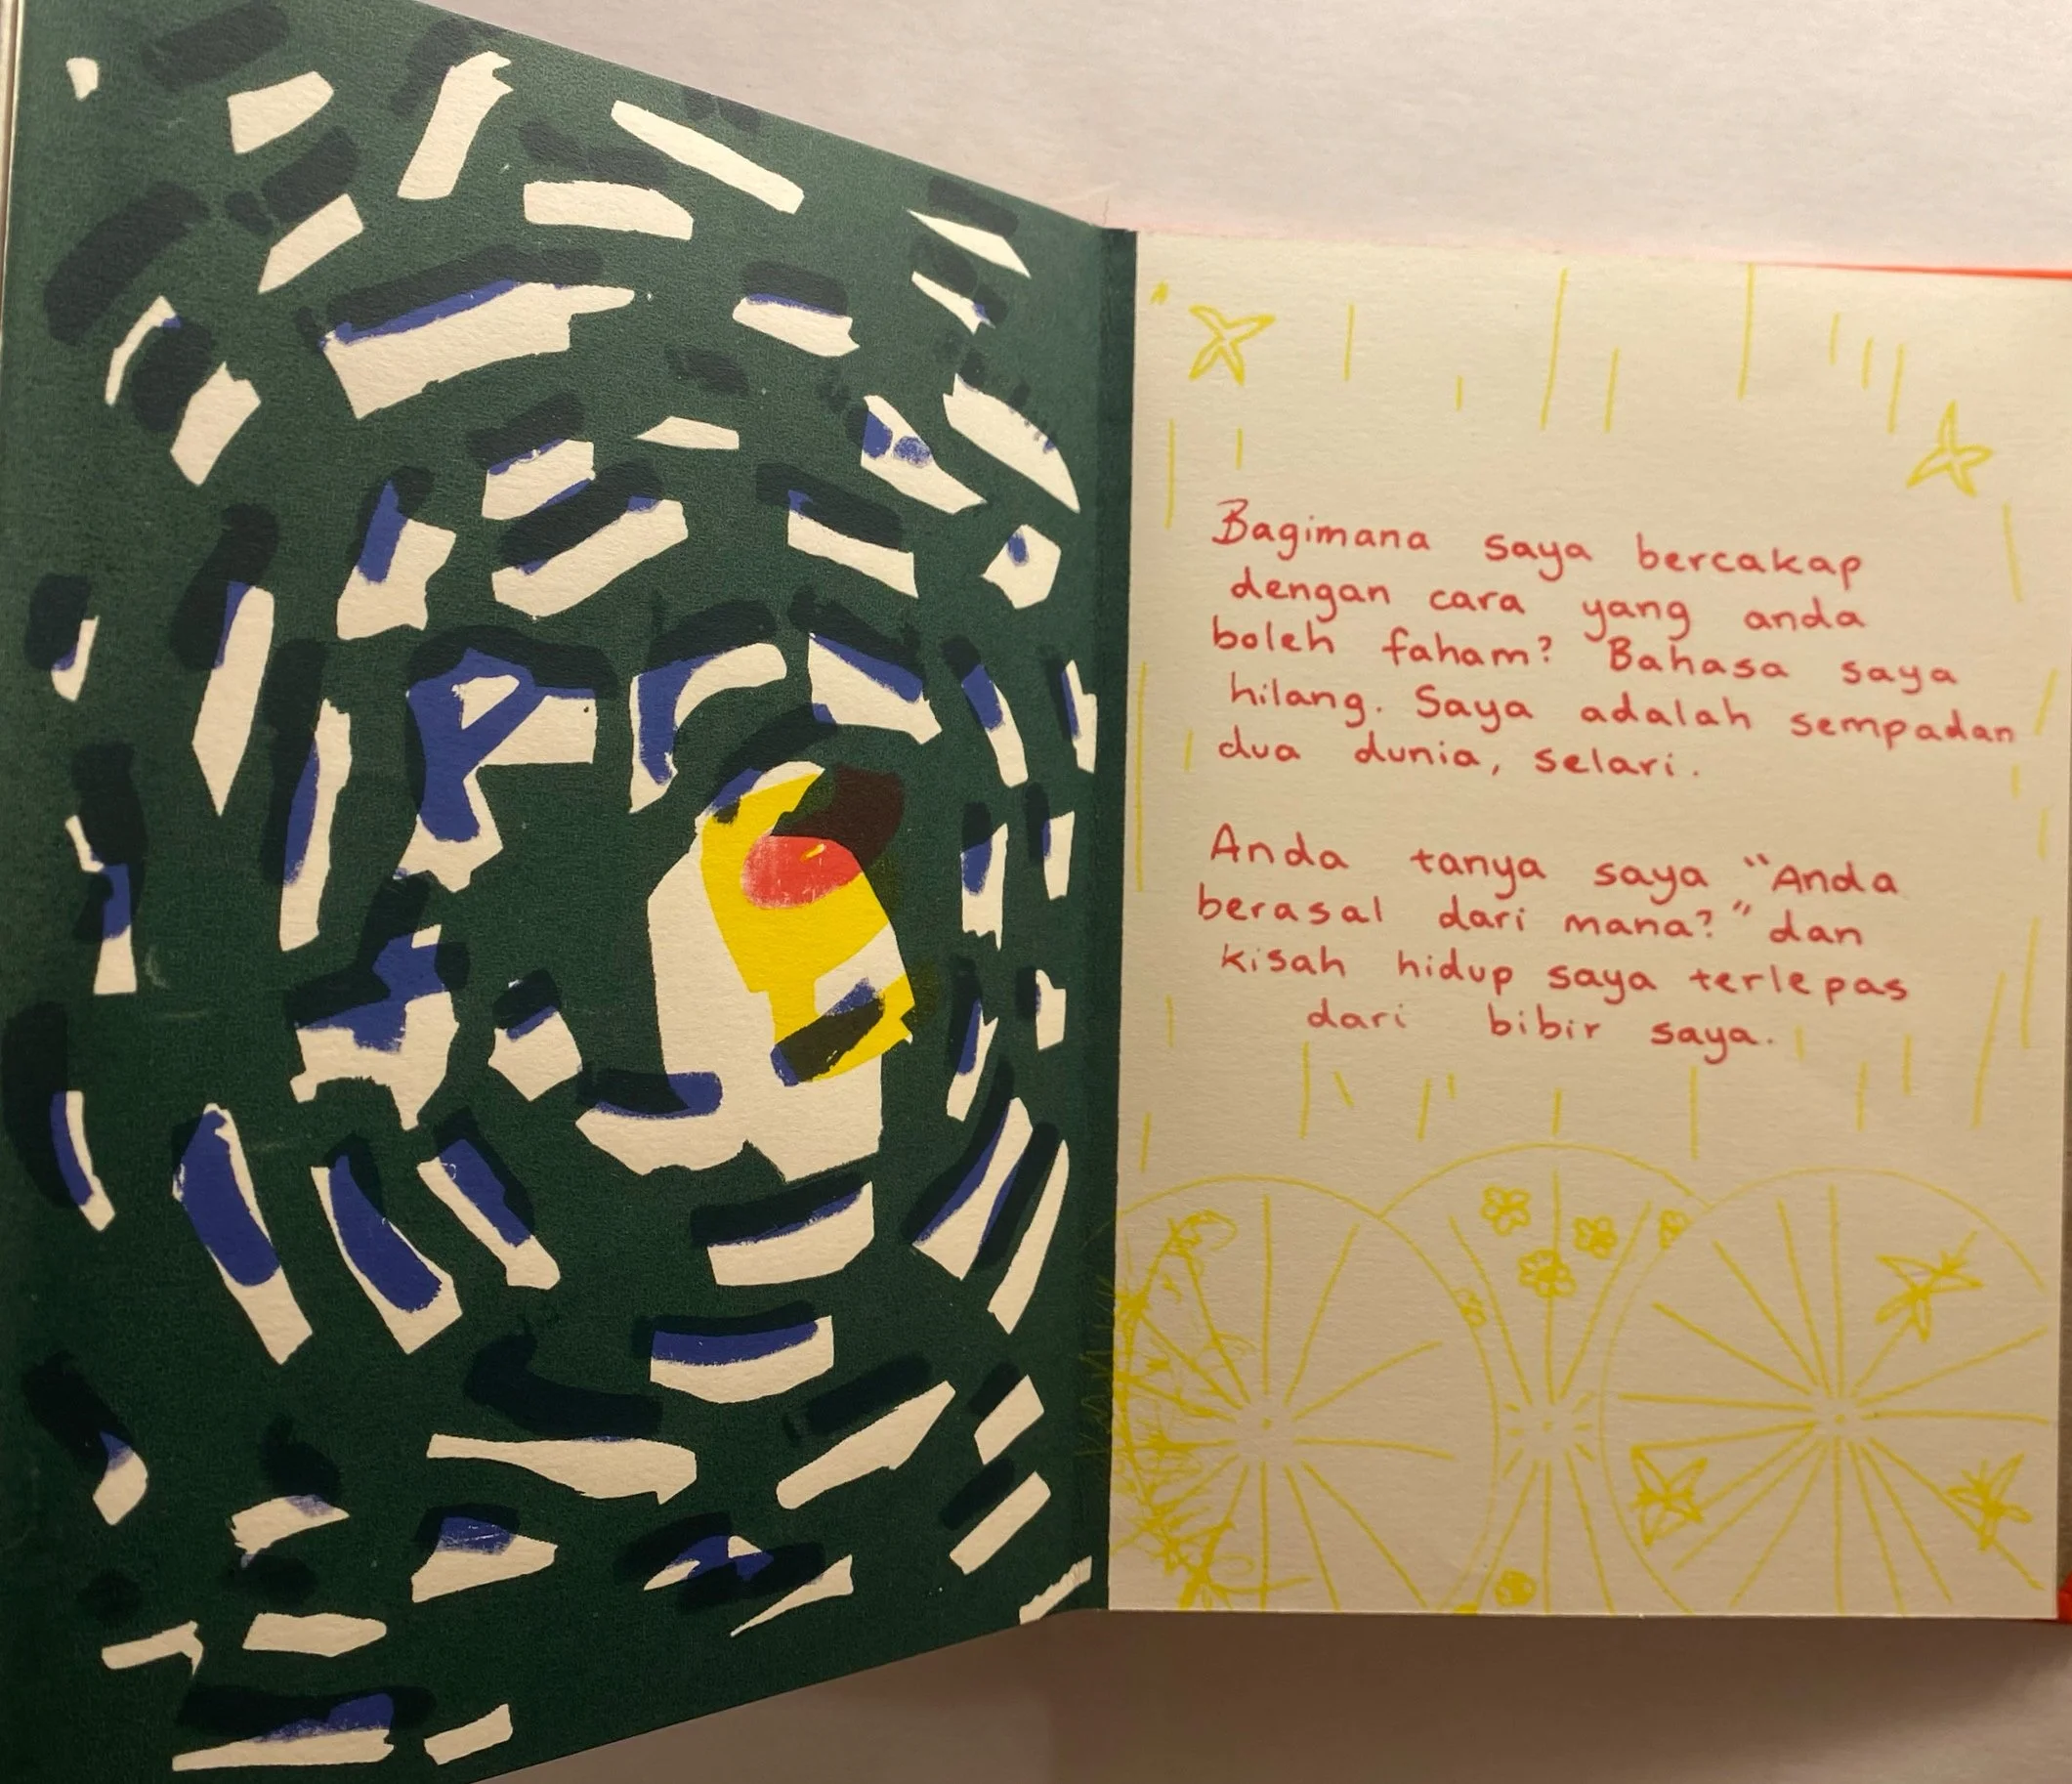 Bagimana saya bercakap
dengan cara yang anda
boleh faham? Bahasa saya
hilang. Saya adalah sempadan
dua dunia, selari.
Anda tanya saya "Anda
berasal dari mana?" dan
kisah hidup saya terlepas
dari bibir saya.